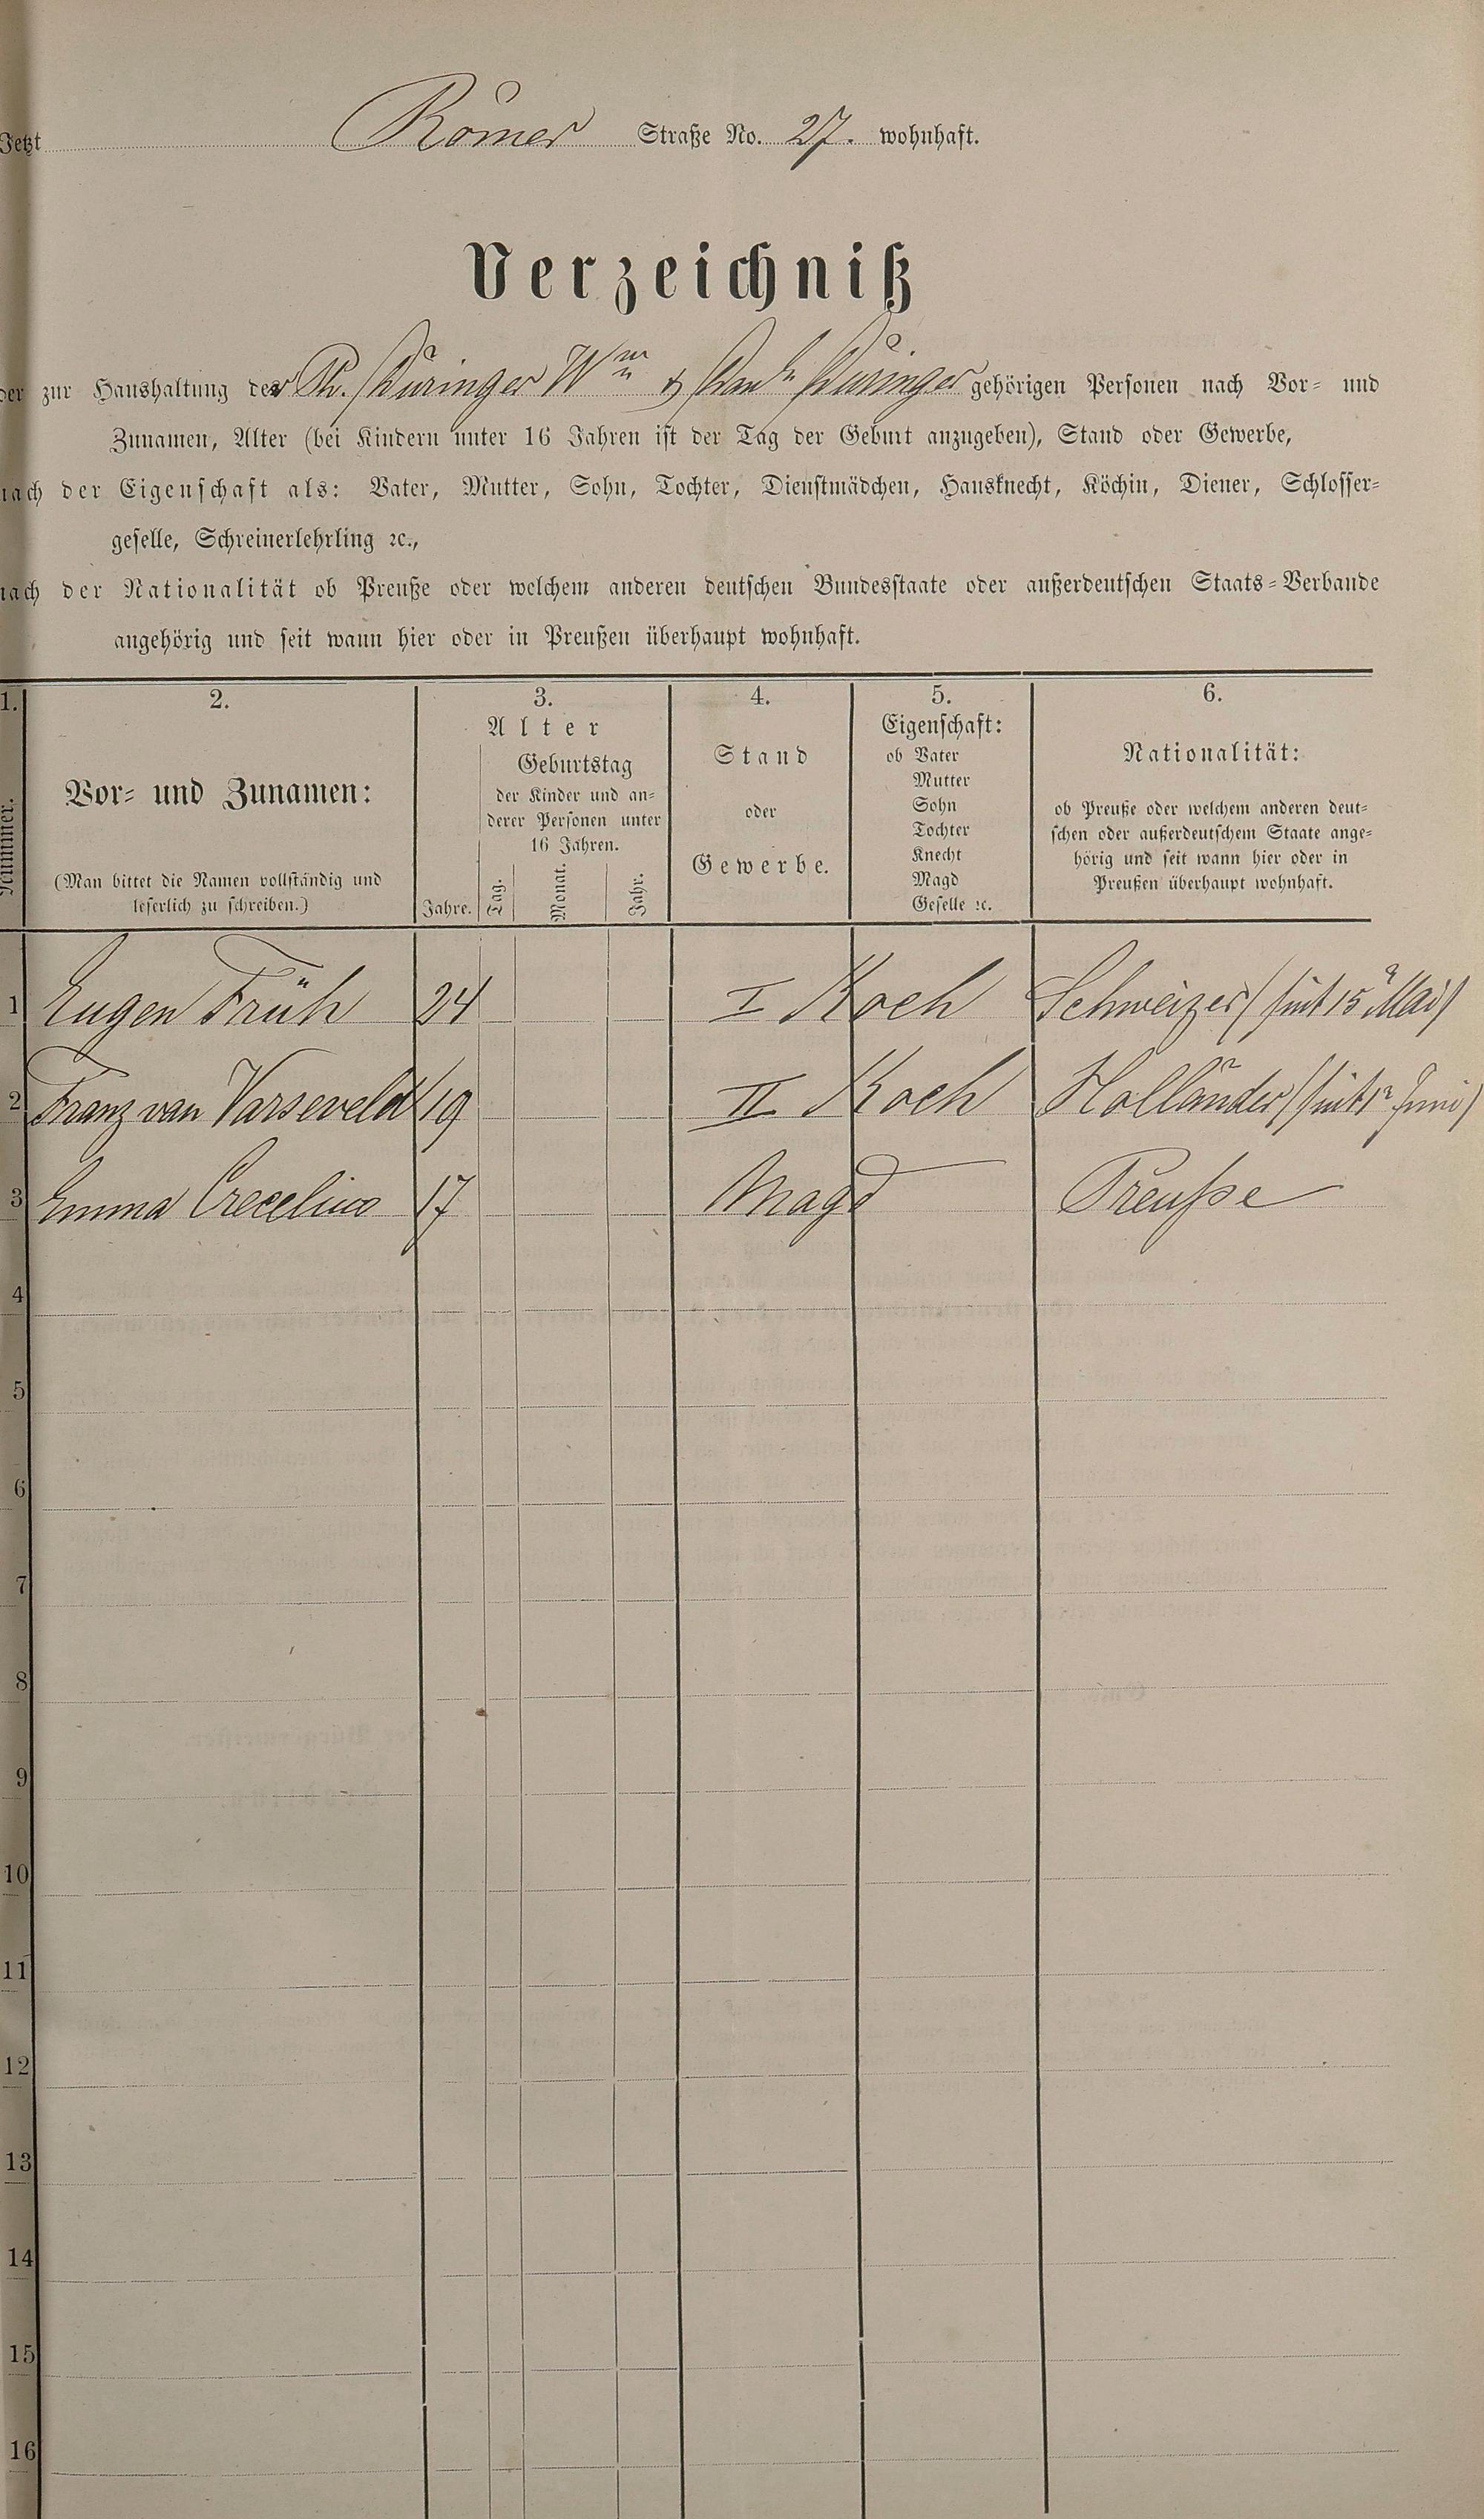 Jetzt Römer Straße No. 27. wohnhaft.
Verzeichniß
der zur Haushaltung der Düringer Düringer gehörigen Personen nach Vor- und
Zunamen, Alter (bei Kindern unter 16 Jahren ist der Tag der Geburt anzugeben), Stand oder Gewerbe,
nach der Eigenschaft als: Vater, Mutter, Sohn, Tochter, Dienstmädchen, Hausknecht, Köchin, Diener, Schlosser-
geselle, Schreinerlehrling ꝛc.,
nach der Nationalität ob Preuße oder welchem anderen deutschen Bundesstaate oder außerdeutschen Staats-Verbande
angehörig und seit wann hier oder in Preußen überhaupt wohnhaft.
1.
Nummer.
2.
Vor- und Zunamen:
(Man bittet die Namen vollständig und
leserlich zu schreiben.)
3.
Alter
Jahre.
Geburtstag
der Kinder und an-
derer Personen unter
16 Jahren.
Tag.
Monat.
Jahr.
4.
Stand
oder
Gewerbe.
5.
Eigenschaft:
ob Vater
Mutter
Sohn
Tochter
Knecht
Magd
Geselle ꝛc.
6.
Nationalität:
ob Preuße oder welchem anderen deut-
schen oder außerdeutschem Staate ange-
hörig und seit wann hier oder in
Preußen überhaupt wohnhaft.
1 Eugen Früh 24 I Koch Schweizer (seit 15r Mai)
2 Franz van Varseveld 19 II Koch Holländer (seit 1r Juni)
3 Emma Crecelius 17 Magd Preuße
4
5
6
7
8
9
10
11
12
13
14
15
16